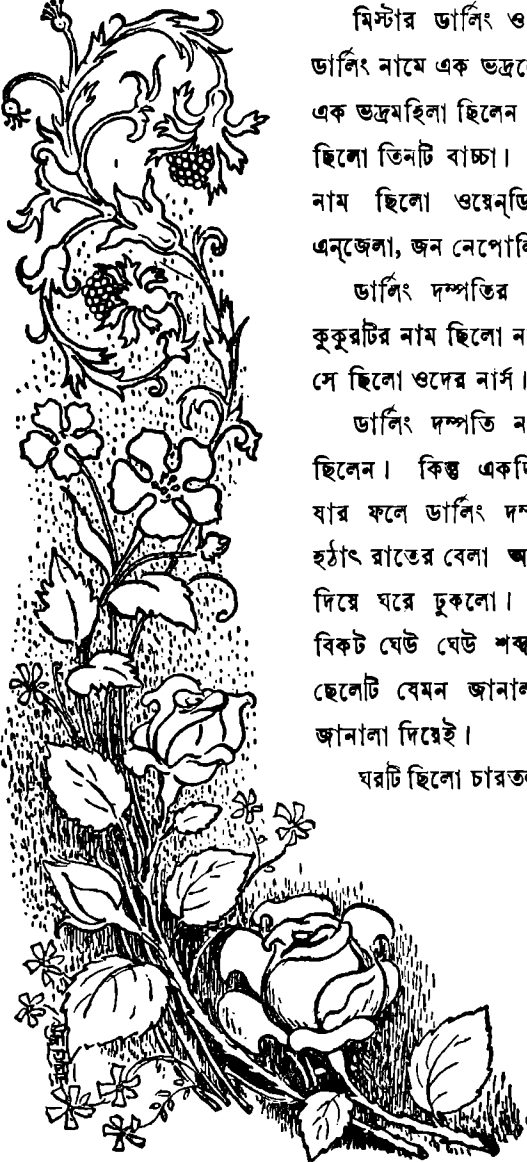 মিস্টার ডার্লিং ও
ডার্লিং নামে এক ভদ্রে
এক ভদ্রমহিলা ছিলেন
ছিলো তিনটি বাচ্চা।
নাম ছিলো ওয়েন্ডি
এন্জেলা, জন নেপোলি
ডার্লিং দম্পতির
কুকুরটির নাম ছিলো ন
সে ছিলো ওদের নার্স।
ডার্লিং দম্পতি ন
ছিলেন। কিন্তু একদি
যার ফলে ডার্লিং দম্
হঠাৎ রাতের বেলা অ
দিয়ে ঘরে ঢুকলো।
বিকট ঘেউ ঘেউ শব্দ
ছেলেটি যেমন জানাল
জানালা দিয়েই।
ঘরটি ছিলো চারতল